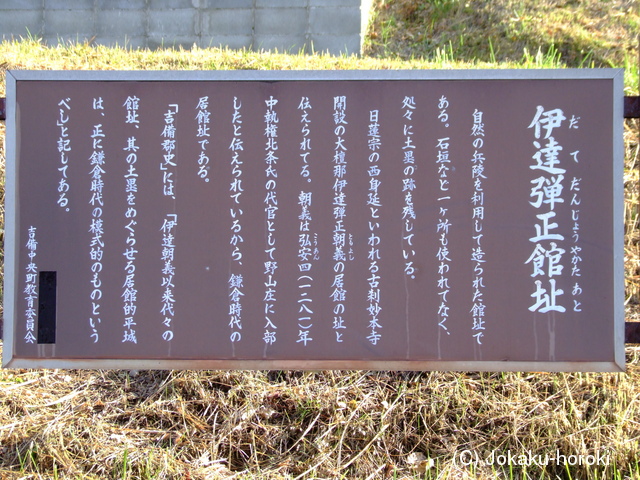 伊達弾正館址
だて だんじょうやかた あと
自然の丘陵を利用して造られた館址で
ある。石垣など一ヶ所も使われてなく、
処々に土塁の跡を残している。
日蓮宗の西身延といわれる古刹妙本寺
開設の大檀那伊達弾正朝義の居館の址と
ともよし
伝えられてる。朝義は弘安四(一二八一)年
こうあん
中執権北条氏の代官として野山庄に入部
したと伝えられているから、鎌倉時代の
居館址である。
「吉備郡史」には、「伊達朝義以来代々の
館址、其の土塁をめぐらせる居館的平城
は、正に鎌倉時代の様式的のものという
べしと記してある。
吉備中央町教育委員会
(C) Jokaku-horoki